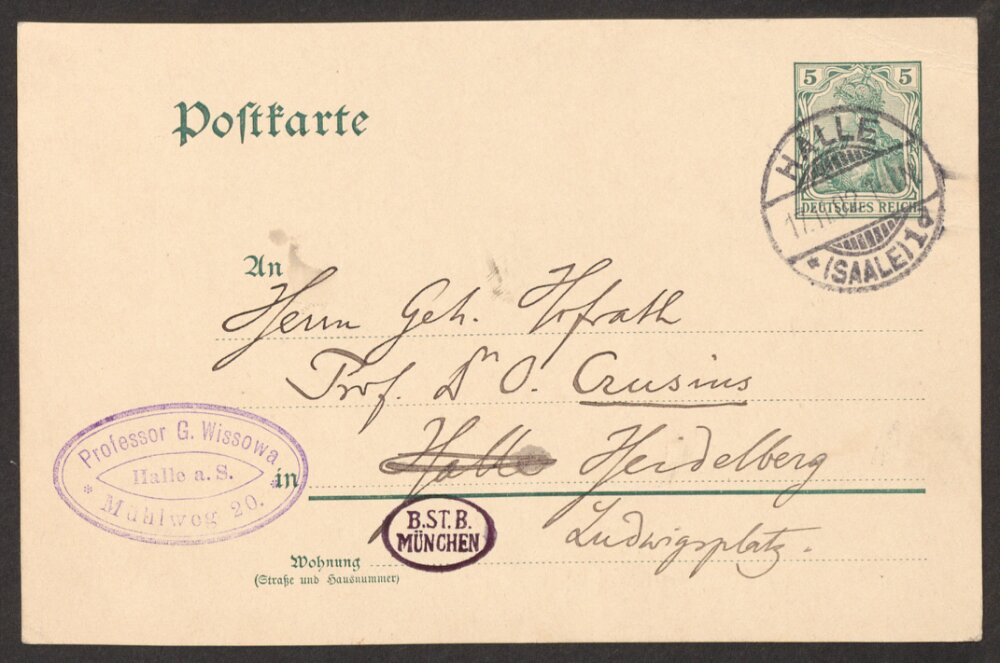 Postkarte
5 5
DEUTSCHES REICH
HALLE
17.11.02
* (SAALE) 1d
An
Herrn Geh. Hofrath
Prof. Dr O. Crusius
in Halle Heidelberg
Ludwigsplatz.
Wohnung
(Straße und Hausnummer)
Professor G. Wissowa
Halle a. S.
* Mühlweg 20.
B.ST.B.
MÜNCHEN